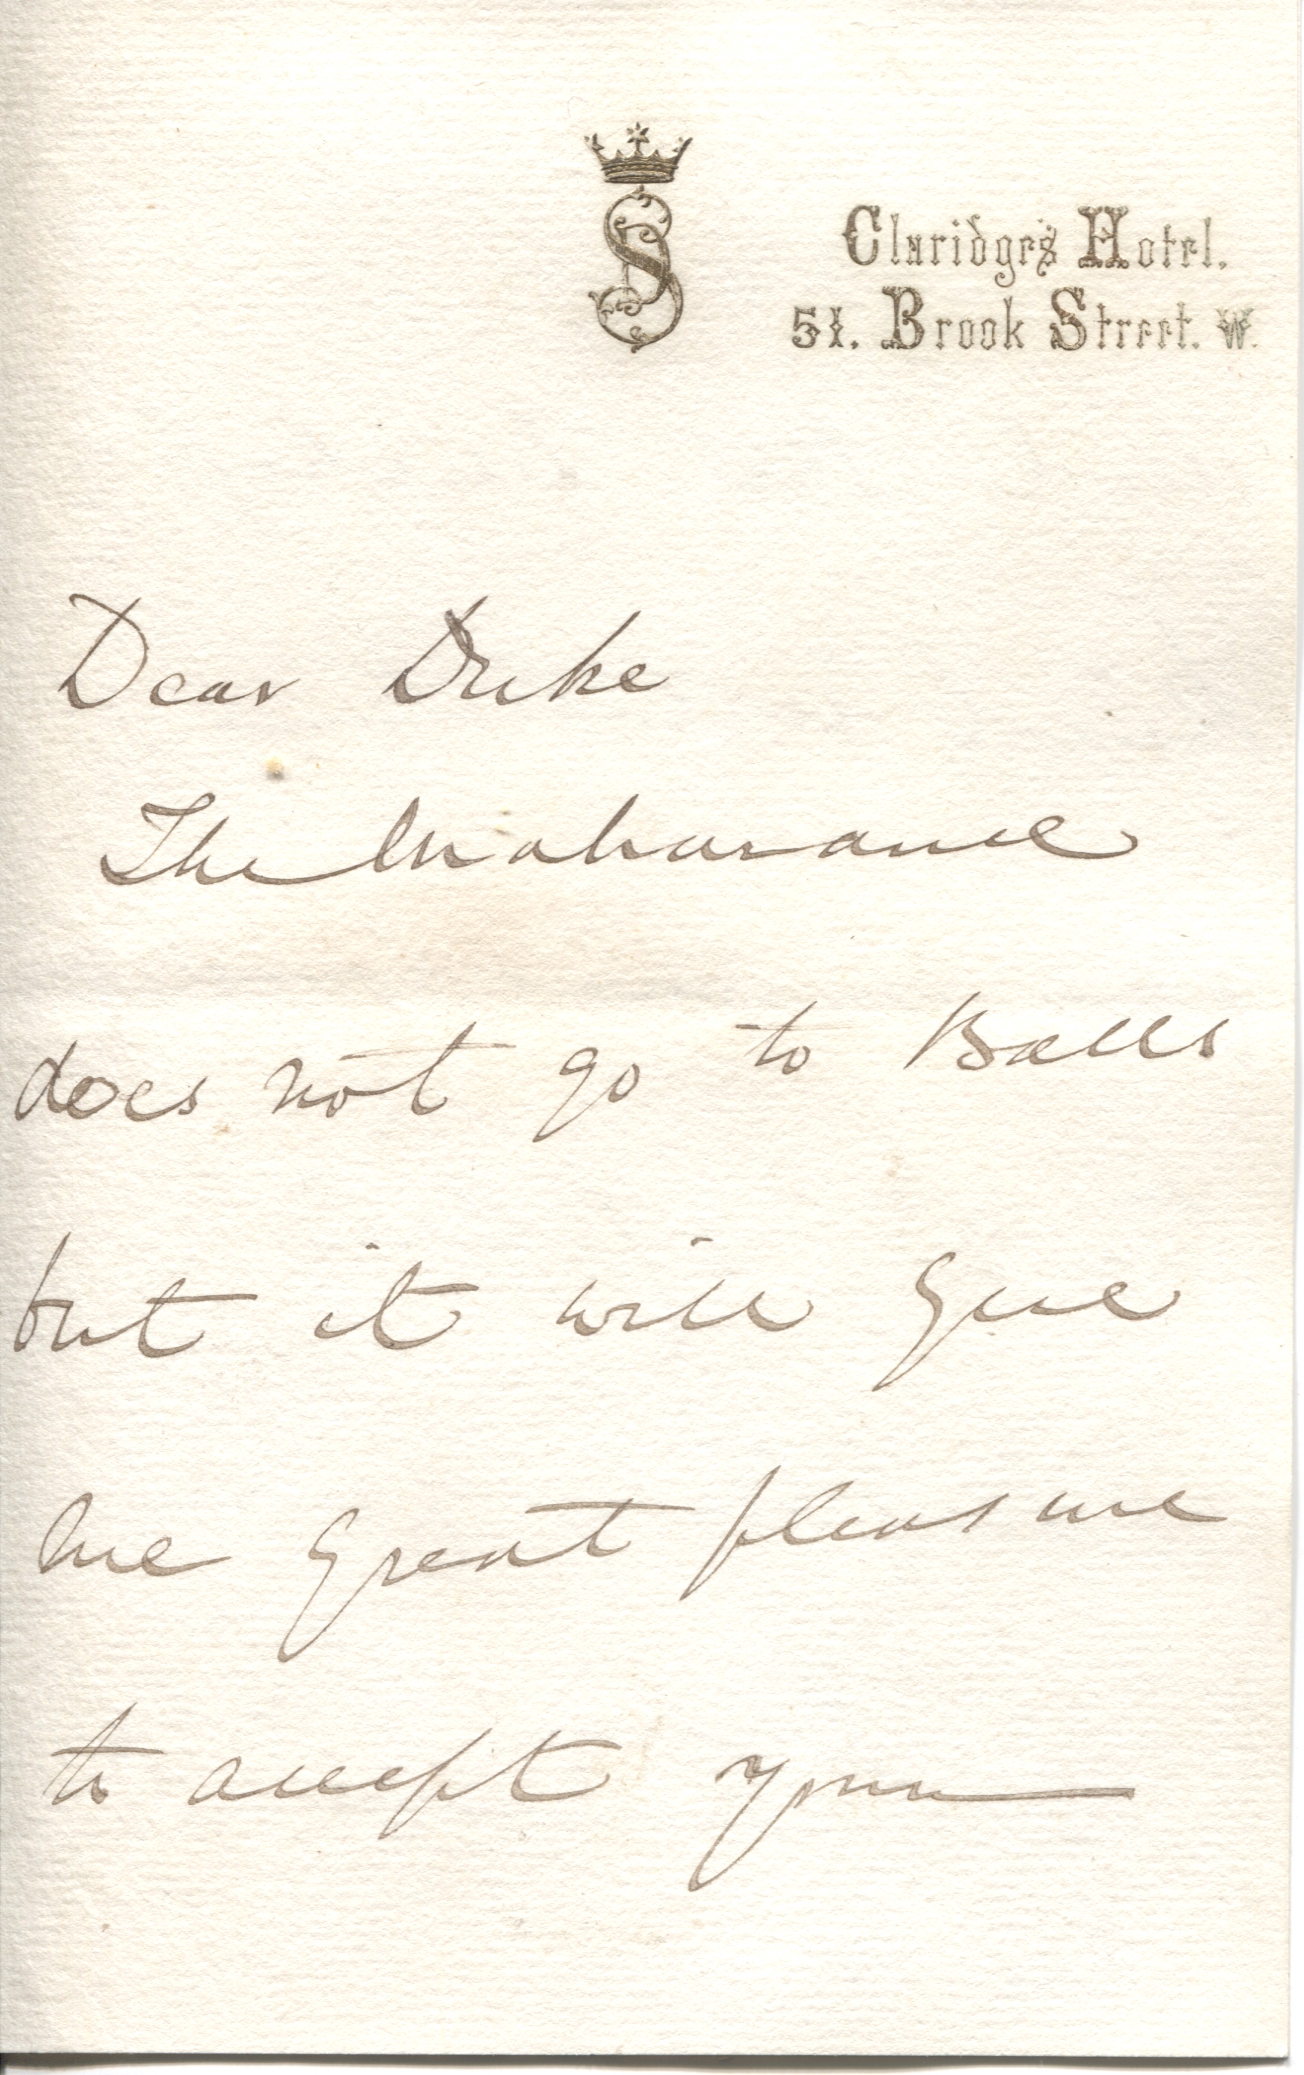 DS
Claridges Hotel.
51. Brook Street. W.
Dear Duke
The Maharanee
does not go to Balls
but it will give
me great pleasure
to accept your